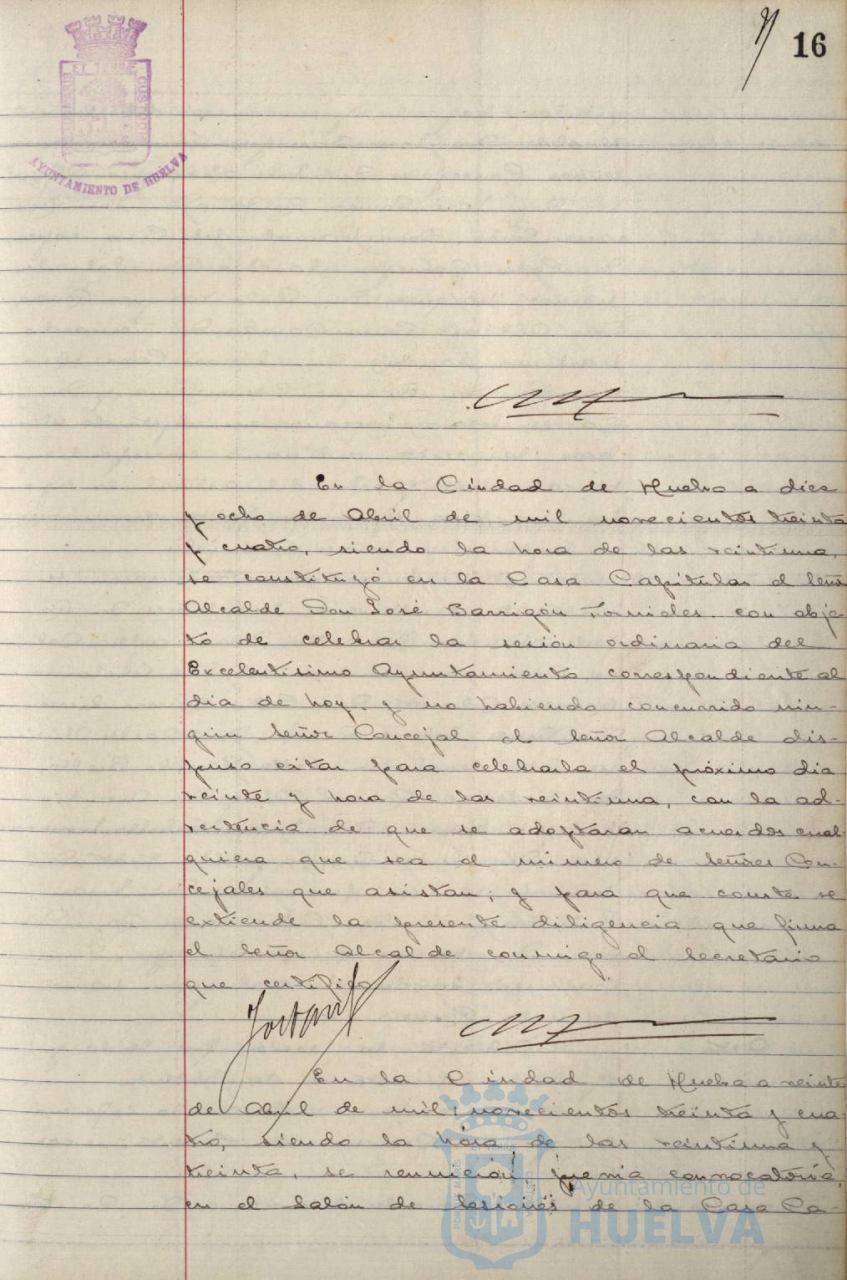 16
PORTUS MARIS ET TERRE CUSTODIA
AYUNTAMIENTO DE HUELVA
En la Ciudad de Huelva a diez
y ocho de Abril de mil novecientos treinta
y cuatro, siendo la hora de las veintiuna,
se constituyó en la Casa Capitular el Señor
Alcalde Don José Barrigón Fornieles, con obje-
to de celebrar la sesión ordinaria del
Excelentísimo Ayuntamiento correspondiente al
dia de hoy, y no habiendo concurrido nin-
gún Señor Concejal el Señor Alcalde dis-
puso citar para celebrarla el próximo dia
veinte y hora de las veintiuna, con la ad-
vertencia de que se adoptarán acuerdos cual-
quiera que sea el número de Señores Con-
cejales que asistan; y para que conste se
extiende la presente diligencia que firma
el Señor Alcalde conmigo el Secretario
que certifico
En la Ciudad de Huelva a veinte
de Abril de mil novecientos treinta y cua-
tro, siendo la hora de las veintiuna y
treinta, se reunieron previa convocatoria,
en el Salón de Sesiones de la Casa Ca-
Ayuntamiento de
HUELVA